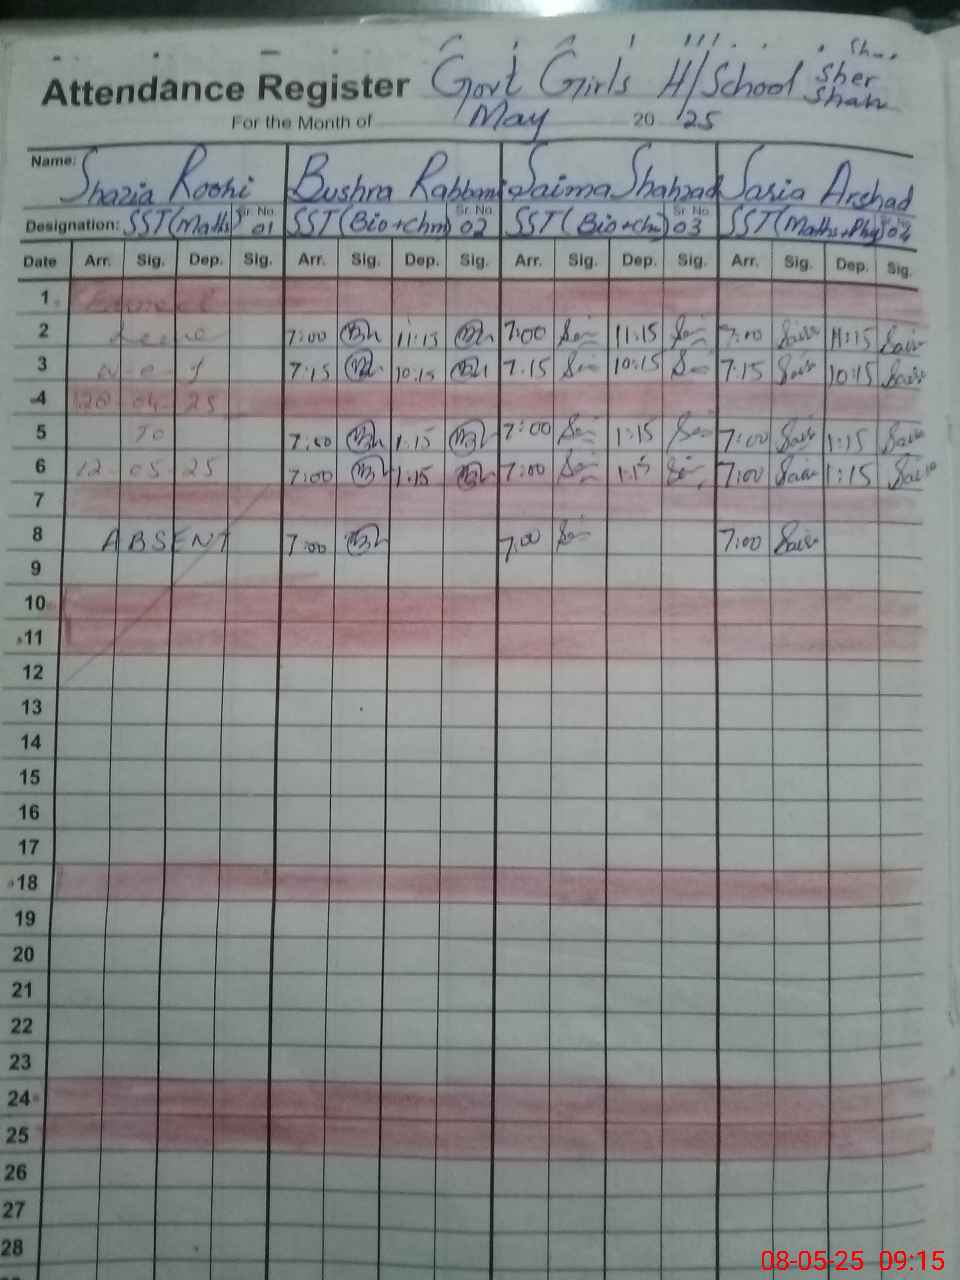 Attendance Register Govt Girls H/School Sher Shah
For the Month of May 20 25
Name: Shazia Roohi Bushra Rabbani Saima Shahzad Saria Arshad
Designation: SST (Maths) Sr. No. 01 SST (Bio+chm) Sr. No. 02 SST (Bio+chm) Sr. No. 03 SST (Maths+Phy) 04
Date Arr. Sig. Dep. Sig. Arr. Sig. Dep. Sig. Arr. Sig. Dep. Sig. Arr. Sig. Dep. Sig.
1
2 7:00 11:15 7:00 11:15 7:00 11:15
3 w-e-f 7:15 10:15 7:15 10:15 7:15 10:15
4 28 04 25
5 To 7:00 1:15 7:00 1:15 7:00 1:15
6 12-05-25 7:00 1:15 7:00 1:15 7:00 1:15
7
8 ABSENT 7:00 7:00 7:00
9
10
11
12
13
14
15
16
17
18
19
20
21
22
23
24
25
26
27
28
08-05-25 09:15